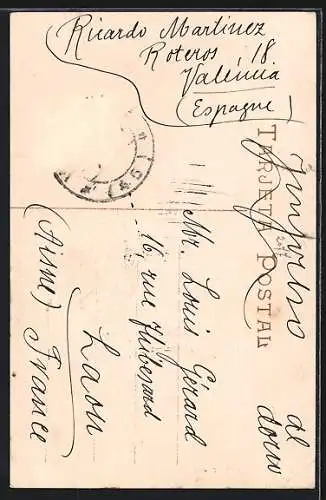 Ricardo Martinez
Roteros 18
Valéncia
(Espagne)
TARJETA POSTAL
al
dorso
Mr. Louis Gérard
16, rue
Laon
(Aisne) France